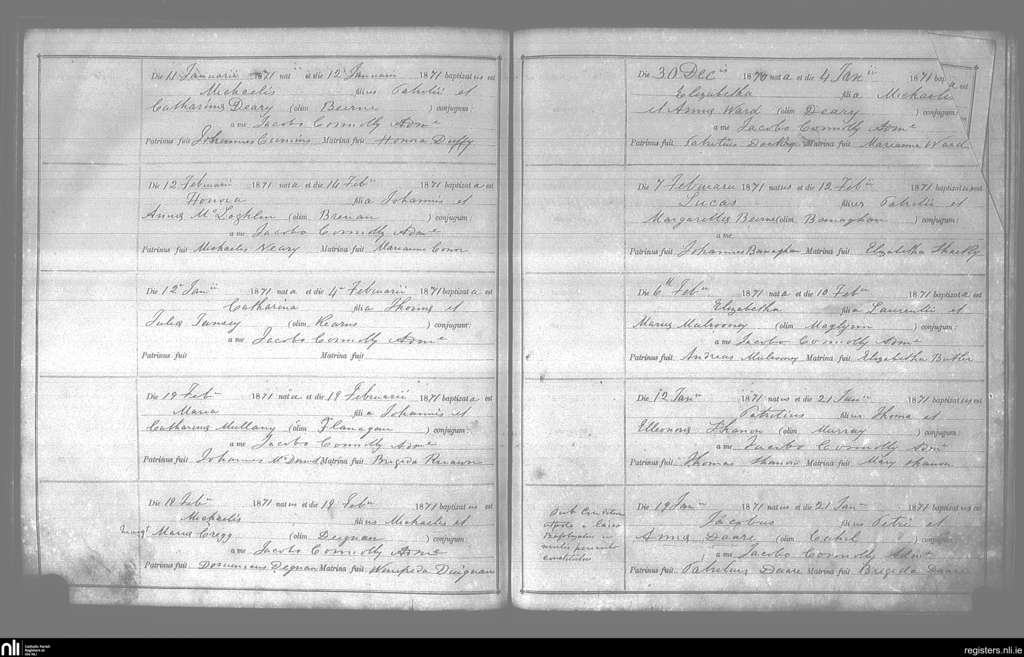 Die 11 Januarii 1871 natus et die 12 Januarii 1871 baptizatus est
Michaelis filius Patritii et
Catharinus Deary (olim Beirne ) conjugum:
a me Jacobo Connolly Admr
Patrinus fuit Johannes Cummins Matrina fuit Honora Duffy
Die 12 Februarii 1871 nata et die 14 Feb 1871 baptizata est
Honora filia Johannis et
Annus McLoghlin (olim Brenan ) conjugum:
a me Jacobo Connolly Admr
Patrinus fuit Michaelis Neary Matrina fuit Marianne Conor
Die 12 Janii 1871 nata et die 4 Februarii 1871 baptizata est
Catharina filia Thomas et
Julia Tansey (olim Kearns ) conjugum:
a me Jacobo Connolly Admr
Patrinus fuit Matrina fuit
Die 19 Feb 1871 nata et die 19 Februarii 1871 baptizata est
Maria filia Johannis et
Catharinus Mullany (olim Flanagan ) conjugum:
a me Jacobo Connolly Admr
Patrinus fuit Johannes McDermd Matrina fuit Brigida
Die 19 Feb 1871 natus et die 19 Feb 1871 baptizatus est
Michaelis filius Michaelis et
Marus Cregg (olim Deignan ) conjugum:
a me Jacobo Connolly Admr
Patrinus fuit Degnan Matrina fuit Winifreda Duignan
Die 30 Dec 1870 nata et die 4 Janii 1871 bap a est
Elizabetha filia Michaelis
et Annus Ward (olim Deary ) conjugum:
a me Jacobo Connolly Admr
Patrinus fuit Patritius Matrina fuit Marianne Ward
Die 7 Februarii 1871 natus et die 12 Feb 1871 baptizatus est
Lucas filius Patritii et
Margarettus Beirne (olim Banaghan ) conjugum:
a me
Patrinus fuit Johannes Banaghan Matrina fuit Elizabetha Sharkey
Die 6th Feb 1871 nata et die 10 Feb 1871 baptizata est
Elizabetha filia Laurentii et
Marus Mulrooney (olim Maglynn ) conjugum:
a me Jacobo Connolly Admr
Patrinus fuit Andreas Mulrooney Matrina fuit Elizabetha Butler
Die 12 Jan 1871 natus et die 21 Jan 1871 baptizatus est
Patritius filius Thoma et
Elleonora Shanon (olim Murray ) conjugum:
a me Jacobo Connolly Admr
Patrinus fuit Thomas Shanon Matrina fuit Mary Shanon
Die 19 Jan 1871 natus et die 21 Jan 1871 baptizatus est
Jacobus filius Petri et
Annus Daare (olim ) conjugum:
a me Jacobo Connolly Admr
Patrinus fuit Patritius Daare Matrina fuit Brigida Daare
nli
Catholic Parish
Registers at
the NLI
registers.nli.ie